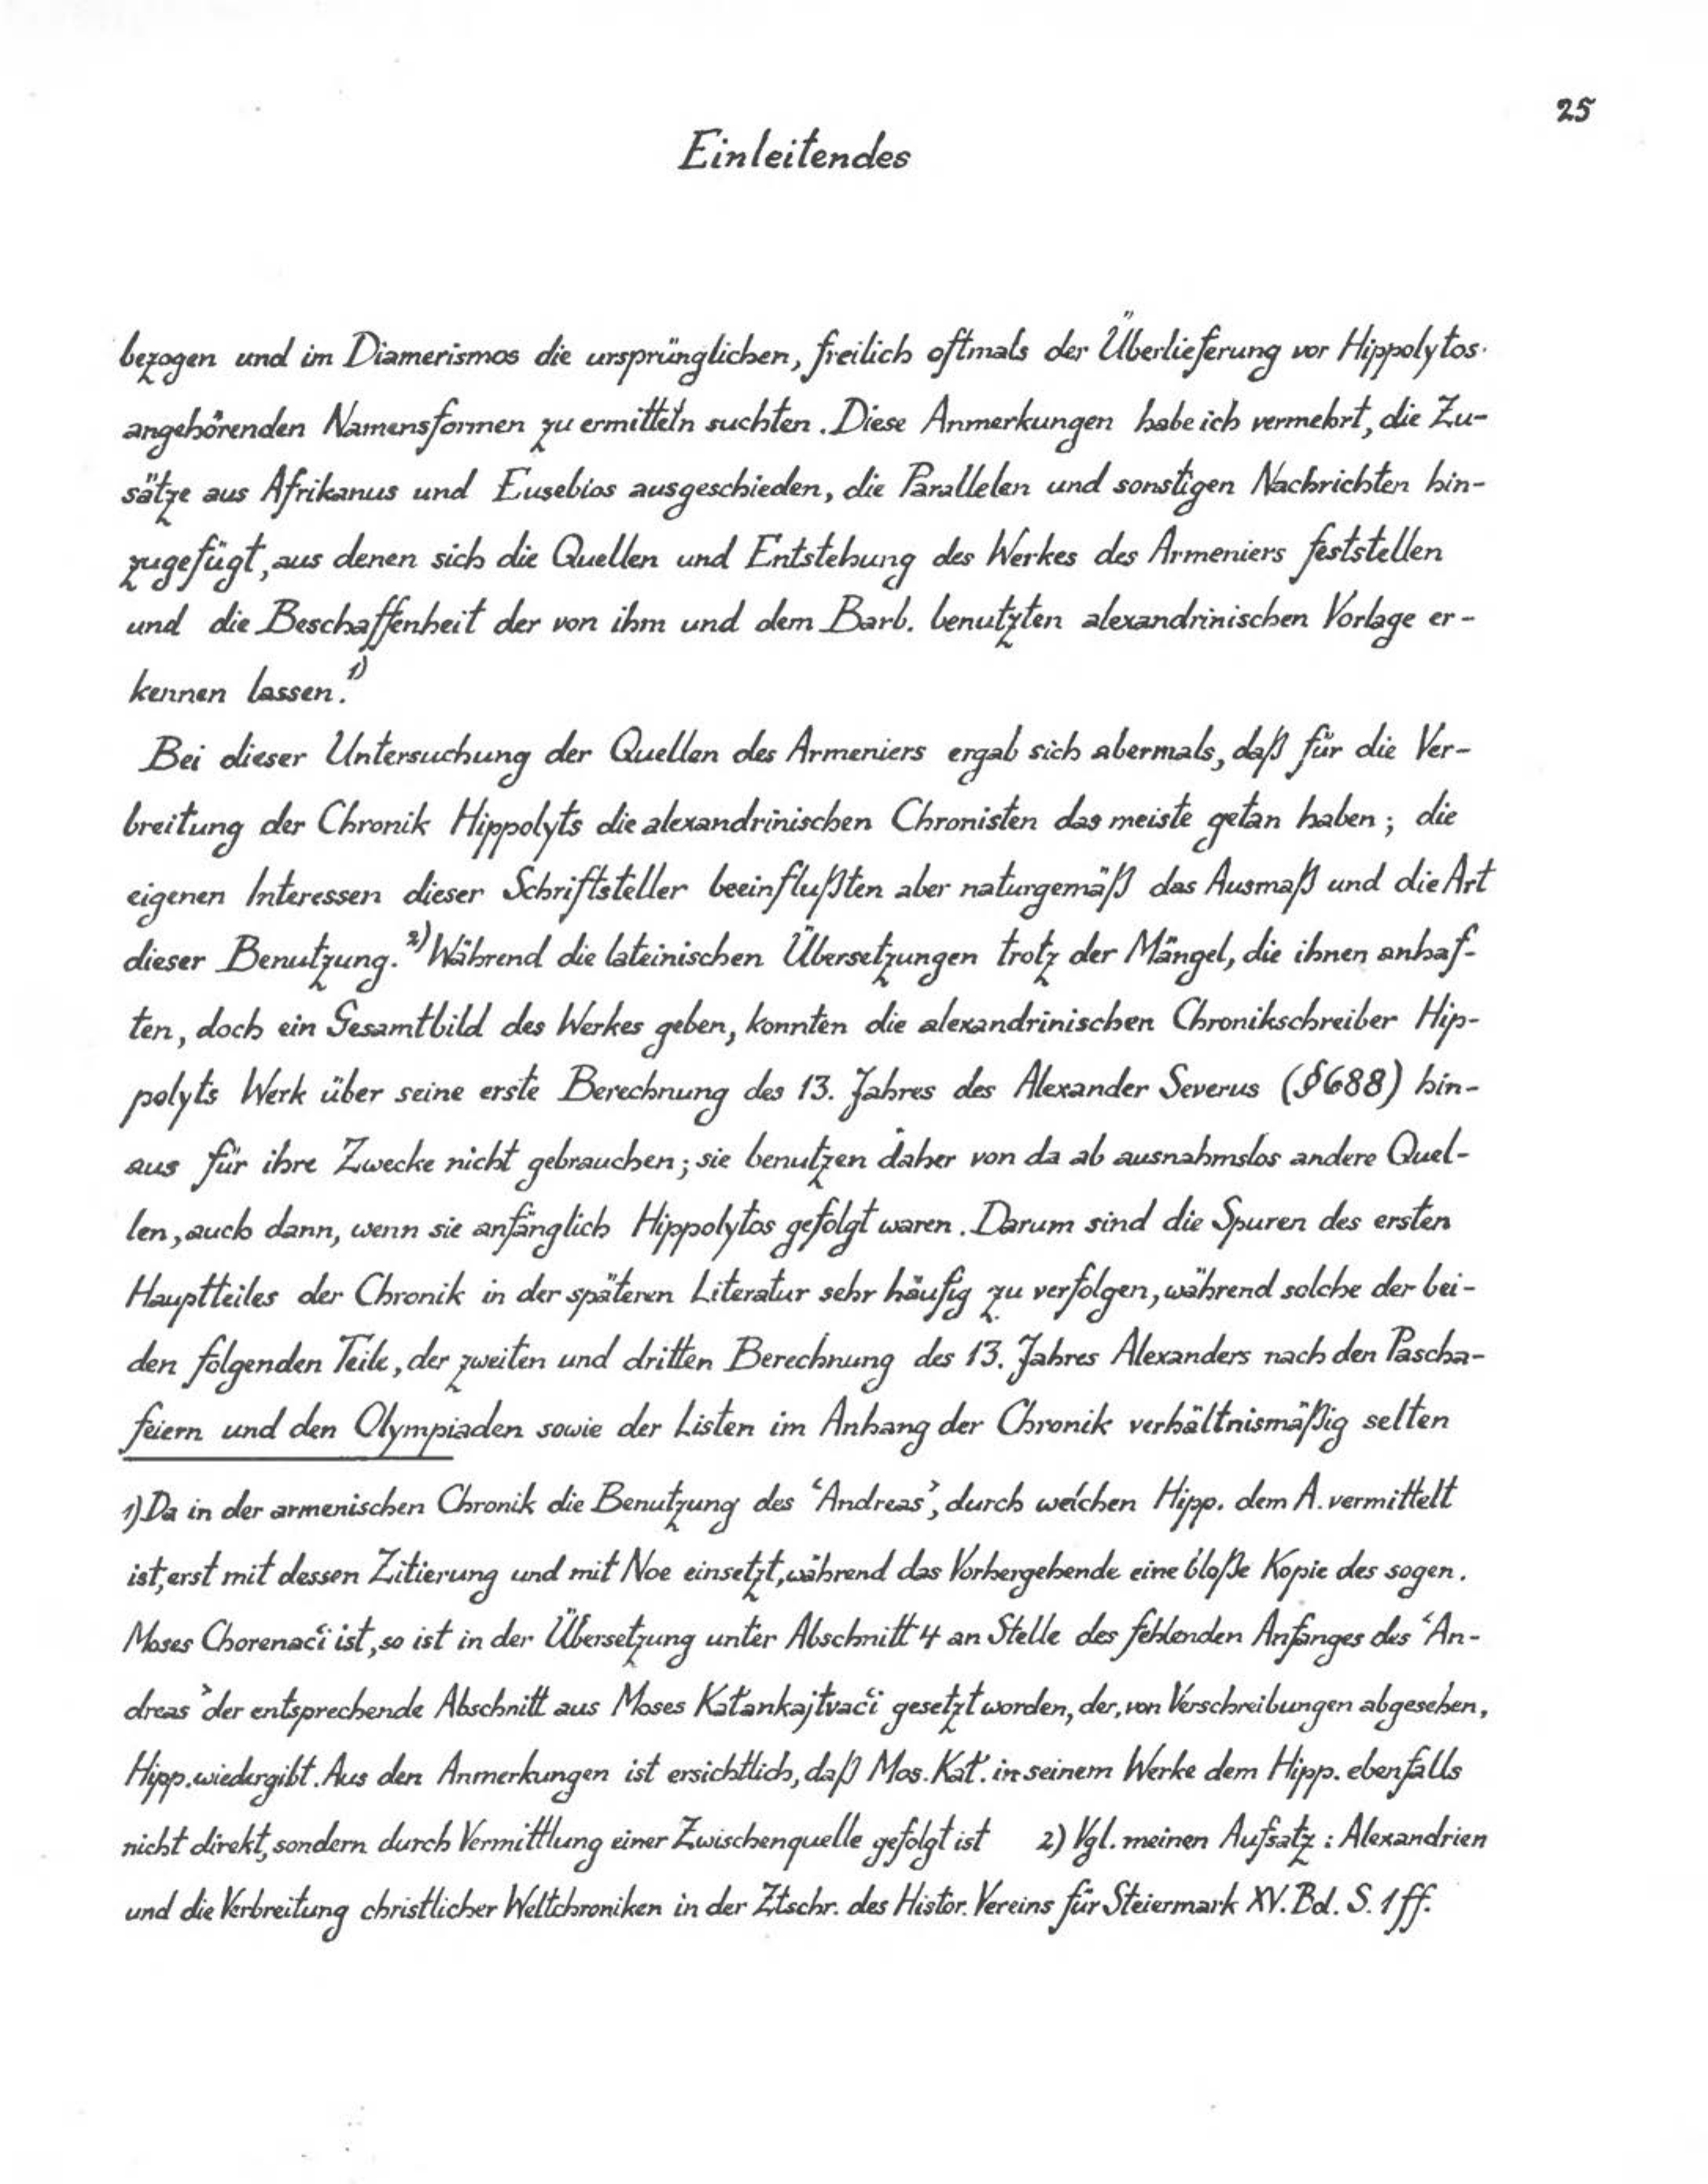 25
Einleitendes
bezogen und im Diamerismos die ursprünglichen, freilich oftmals der Überlieferung vor Hippolytos
angehörenden Namensformen zu ermitteln suchten. Diese Anmerkungen habe ich vermehrt, die Zu-
sätze aus Afrikanus und Eusebios ausgeschieden, die Parallelen und sonstigen Nachrichten hin-
zugefügt, aus denen sich die Quellen und Entstehung des Werkes des Armeniers feststellen
und die Beschaffenheit der von ihm und dem Barb. benutzten alexandrinischen Vorlage er-
kennen lassen.1)
Bei dieser Untersuchung der Quellen des Armeniers ergab sich abermals, daß für die Ver-
breitung der Chronik Hippolyts die alexandrinischen Chronisten das meiste getan haben; die
eigenen Interessen dieser Schriftsteller beeinflußten aber naturgemäß das Ausmaß und die Art
dieser Benutzung.2) Während die lateinischen Übersetzungen trotz der Mängel, die ihnen anhaf-
ten, doch ein Gesamtbild des Werkes geben, konnten die alexandrinischen Chronikschreiber Hip-
polyts Werk über seine erste Berechnung des 13. Jahres des Alexander Severus (§688) hin-
aus für ihre Zwecke nicht gebrauchen; sie benutzen daher von da ab ausnahmslos andere Quel-
len, auch dann, wenn sie anfänglich Hippolytos gefolgt waren. Darum sind die Spuren des ersten
Hauptteiles der Chronik in der späteren Literatur sehr häufig zu verfolgen, während solche der bei-
den folgenden Teile, der zweiten und dritten Berechnung des 13. Jahres Alexanders nach den Pascha-
feiern und den Olympiaden sowie der Listen im Anhang der Chronik verhältnismäßig selten
1) Da in der armenischen Chronik die Benutzung des ‘Andreas’, durch welchen Hipp. dem A. vermittelt
ist, erst mit dessen Zitierung und mit Noe einsetzt, während das Vorhergehende eine bloße Kopie des sogen.
Moses Chorenac‘i ist, so ist in der Übersetzung unter Abschnitt 4 an Stelle des fehlenden Anfanges des ‘An-
dreas’ der entsprechende Abschnitt aus Moses Kałankajtvac‘i gesetzt worden, der, von Verschreibungen abgesehen,
Hipp. wiedergibt. Aus den Anmerkungen ist ersichtlich, daß Mos. Kał. in seinem Werke dem Hipp. ebenfalls
nicht direkt, sondern durch Vermittlung einer Zwischenquelle gefolgt ist 2) Vgl. meinen Aufsatz: Alexandrien
und die Verbreitung christlicher Weltchroniken in der Ztschr. des Histor. Vereins für Steiermark XV. Bd. S. 1ff.